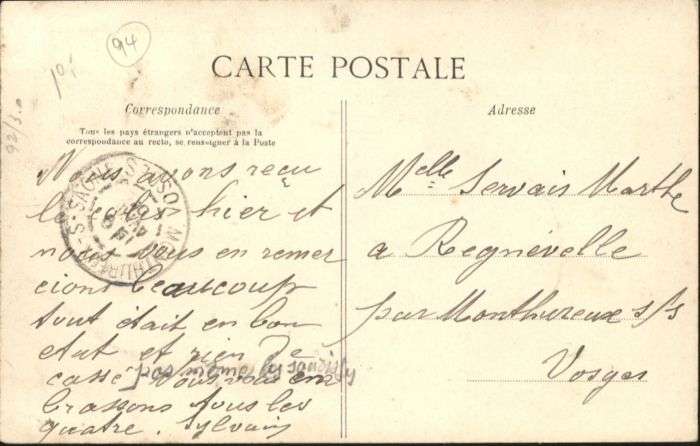 94
92/3.0
CARTE POSTALE
Correspondance
Tous les pays étrangers n'acceptent pas la
correspondance au recto, se renseigner à la Poste
Nous avons recu
le colis hier et
nous vous en remer
cions beaucoup
tout était en bon
état et rien de
casse. Nous vous em
brassons tous les
quatre. Sylvain
Adresse
Melle Servais Marthe
a Regnévelle
par Monthureux s/s
Vosges
MONTHUREUX-S-SAONE
VOSGES